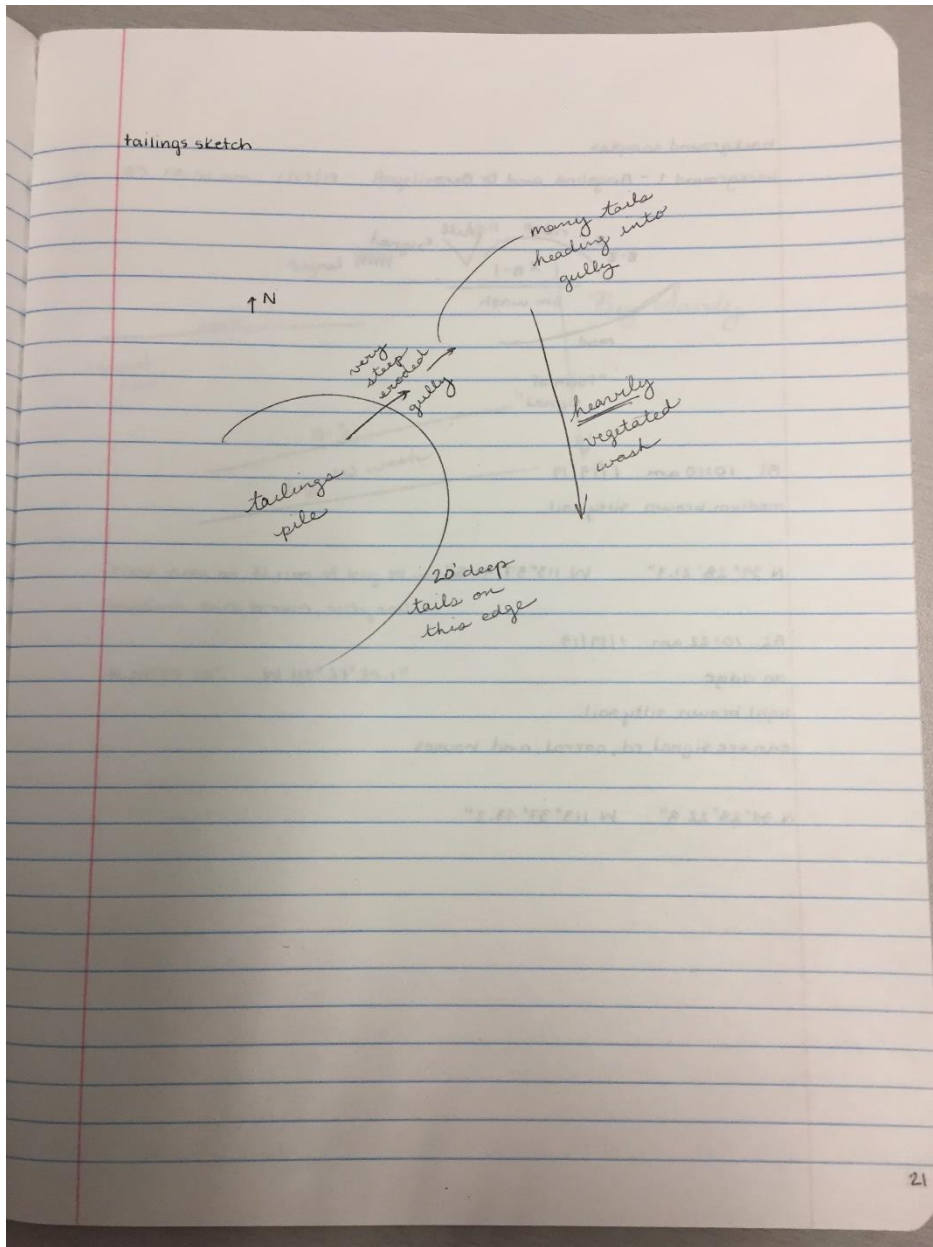 tailings sketch
many tails
heading into
gully
↑ N
very
steep
eroded
gully
heavily
vegetated
wash
tailings
pile
20' deep
tails on
this edge
21